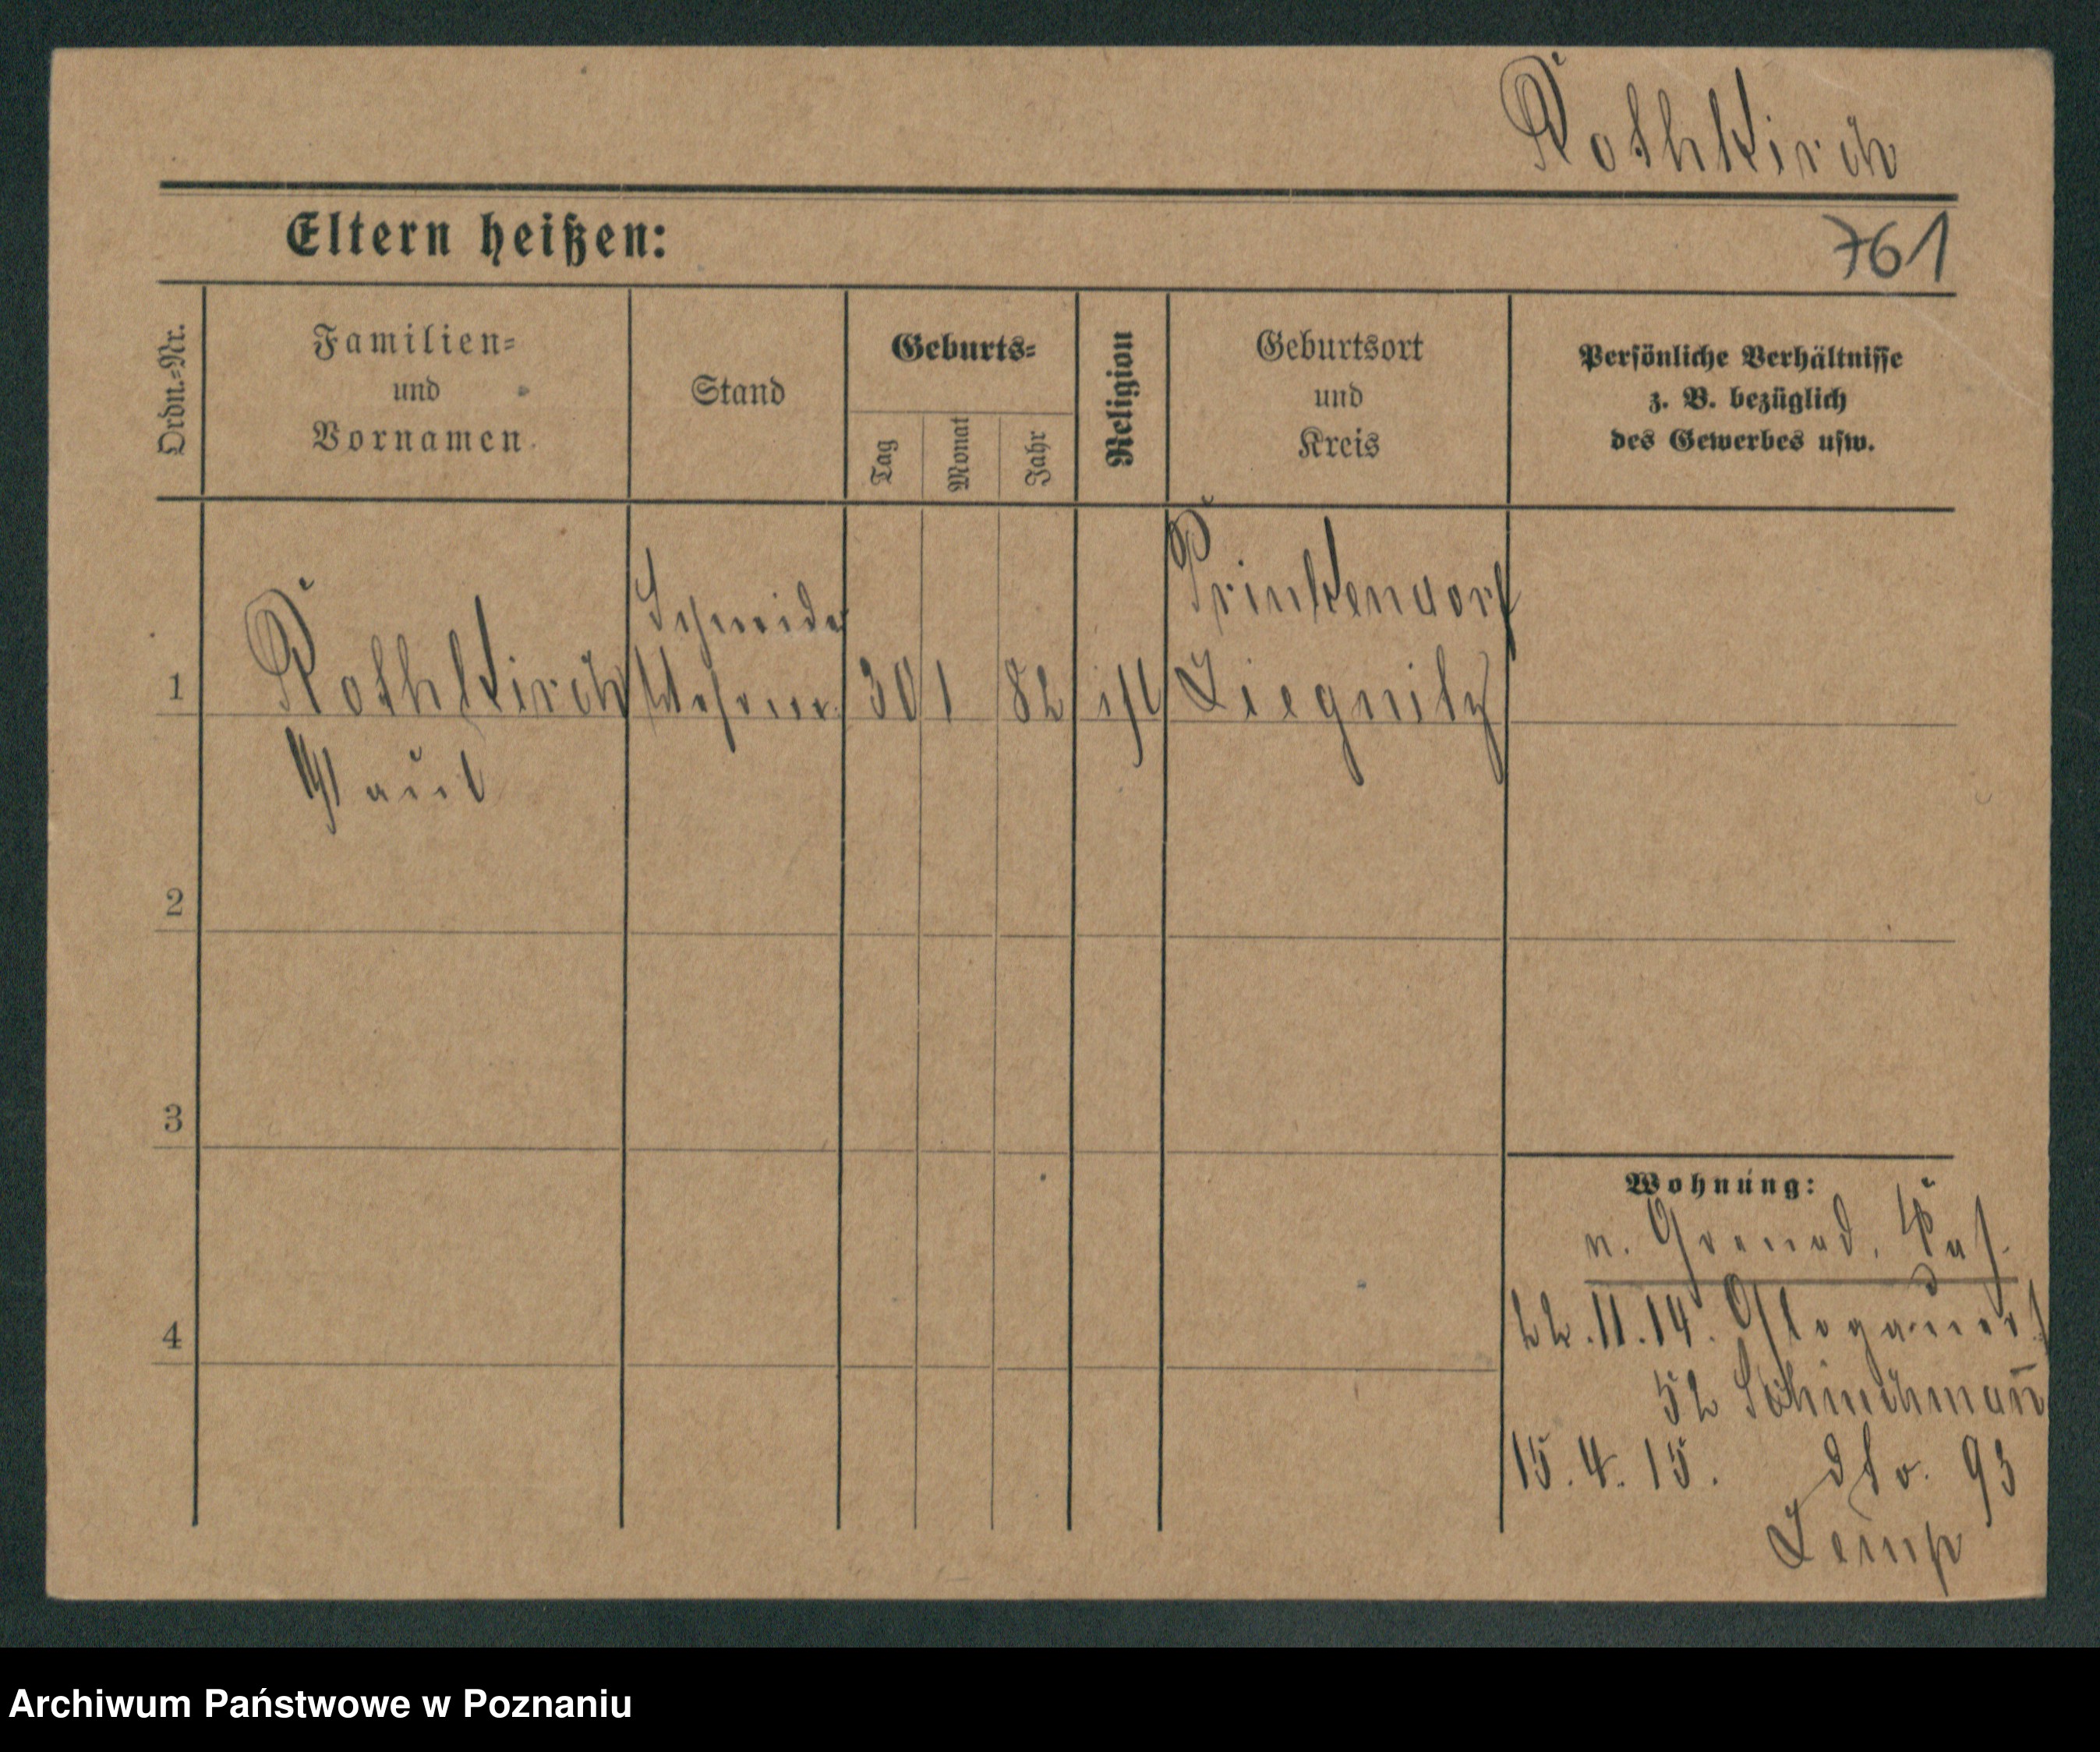 Rothkirch
Eltern heißen:
761
Ordn.=Nr.
Familien=
und
Vornamen.
Stand
Geburts=
Tag
Monat
Jahr
Religion
Geburtsort
und
Kreis
Persönliche Verhältnisse
z. B. bezüglich
des Gewerbes usw.
1
Rothkirch
Paul
Schmide
30 1 82
Prinkendorf
Liegnitz
2
3
4
Wohnung:
n. Grenad. Kas.
22.11.14. Glogauerst
52 Schiechmann
15.4.15. dto. 93
Lemp
Archiwum Państwowe w Poznaniu